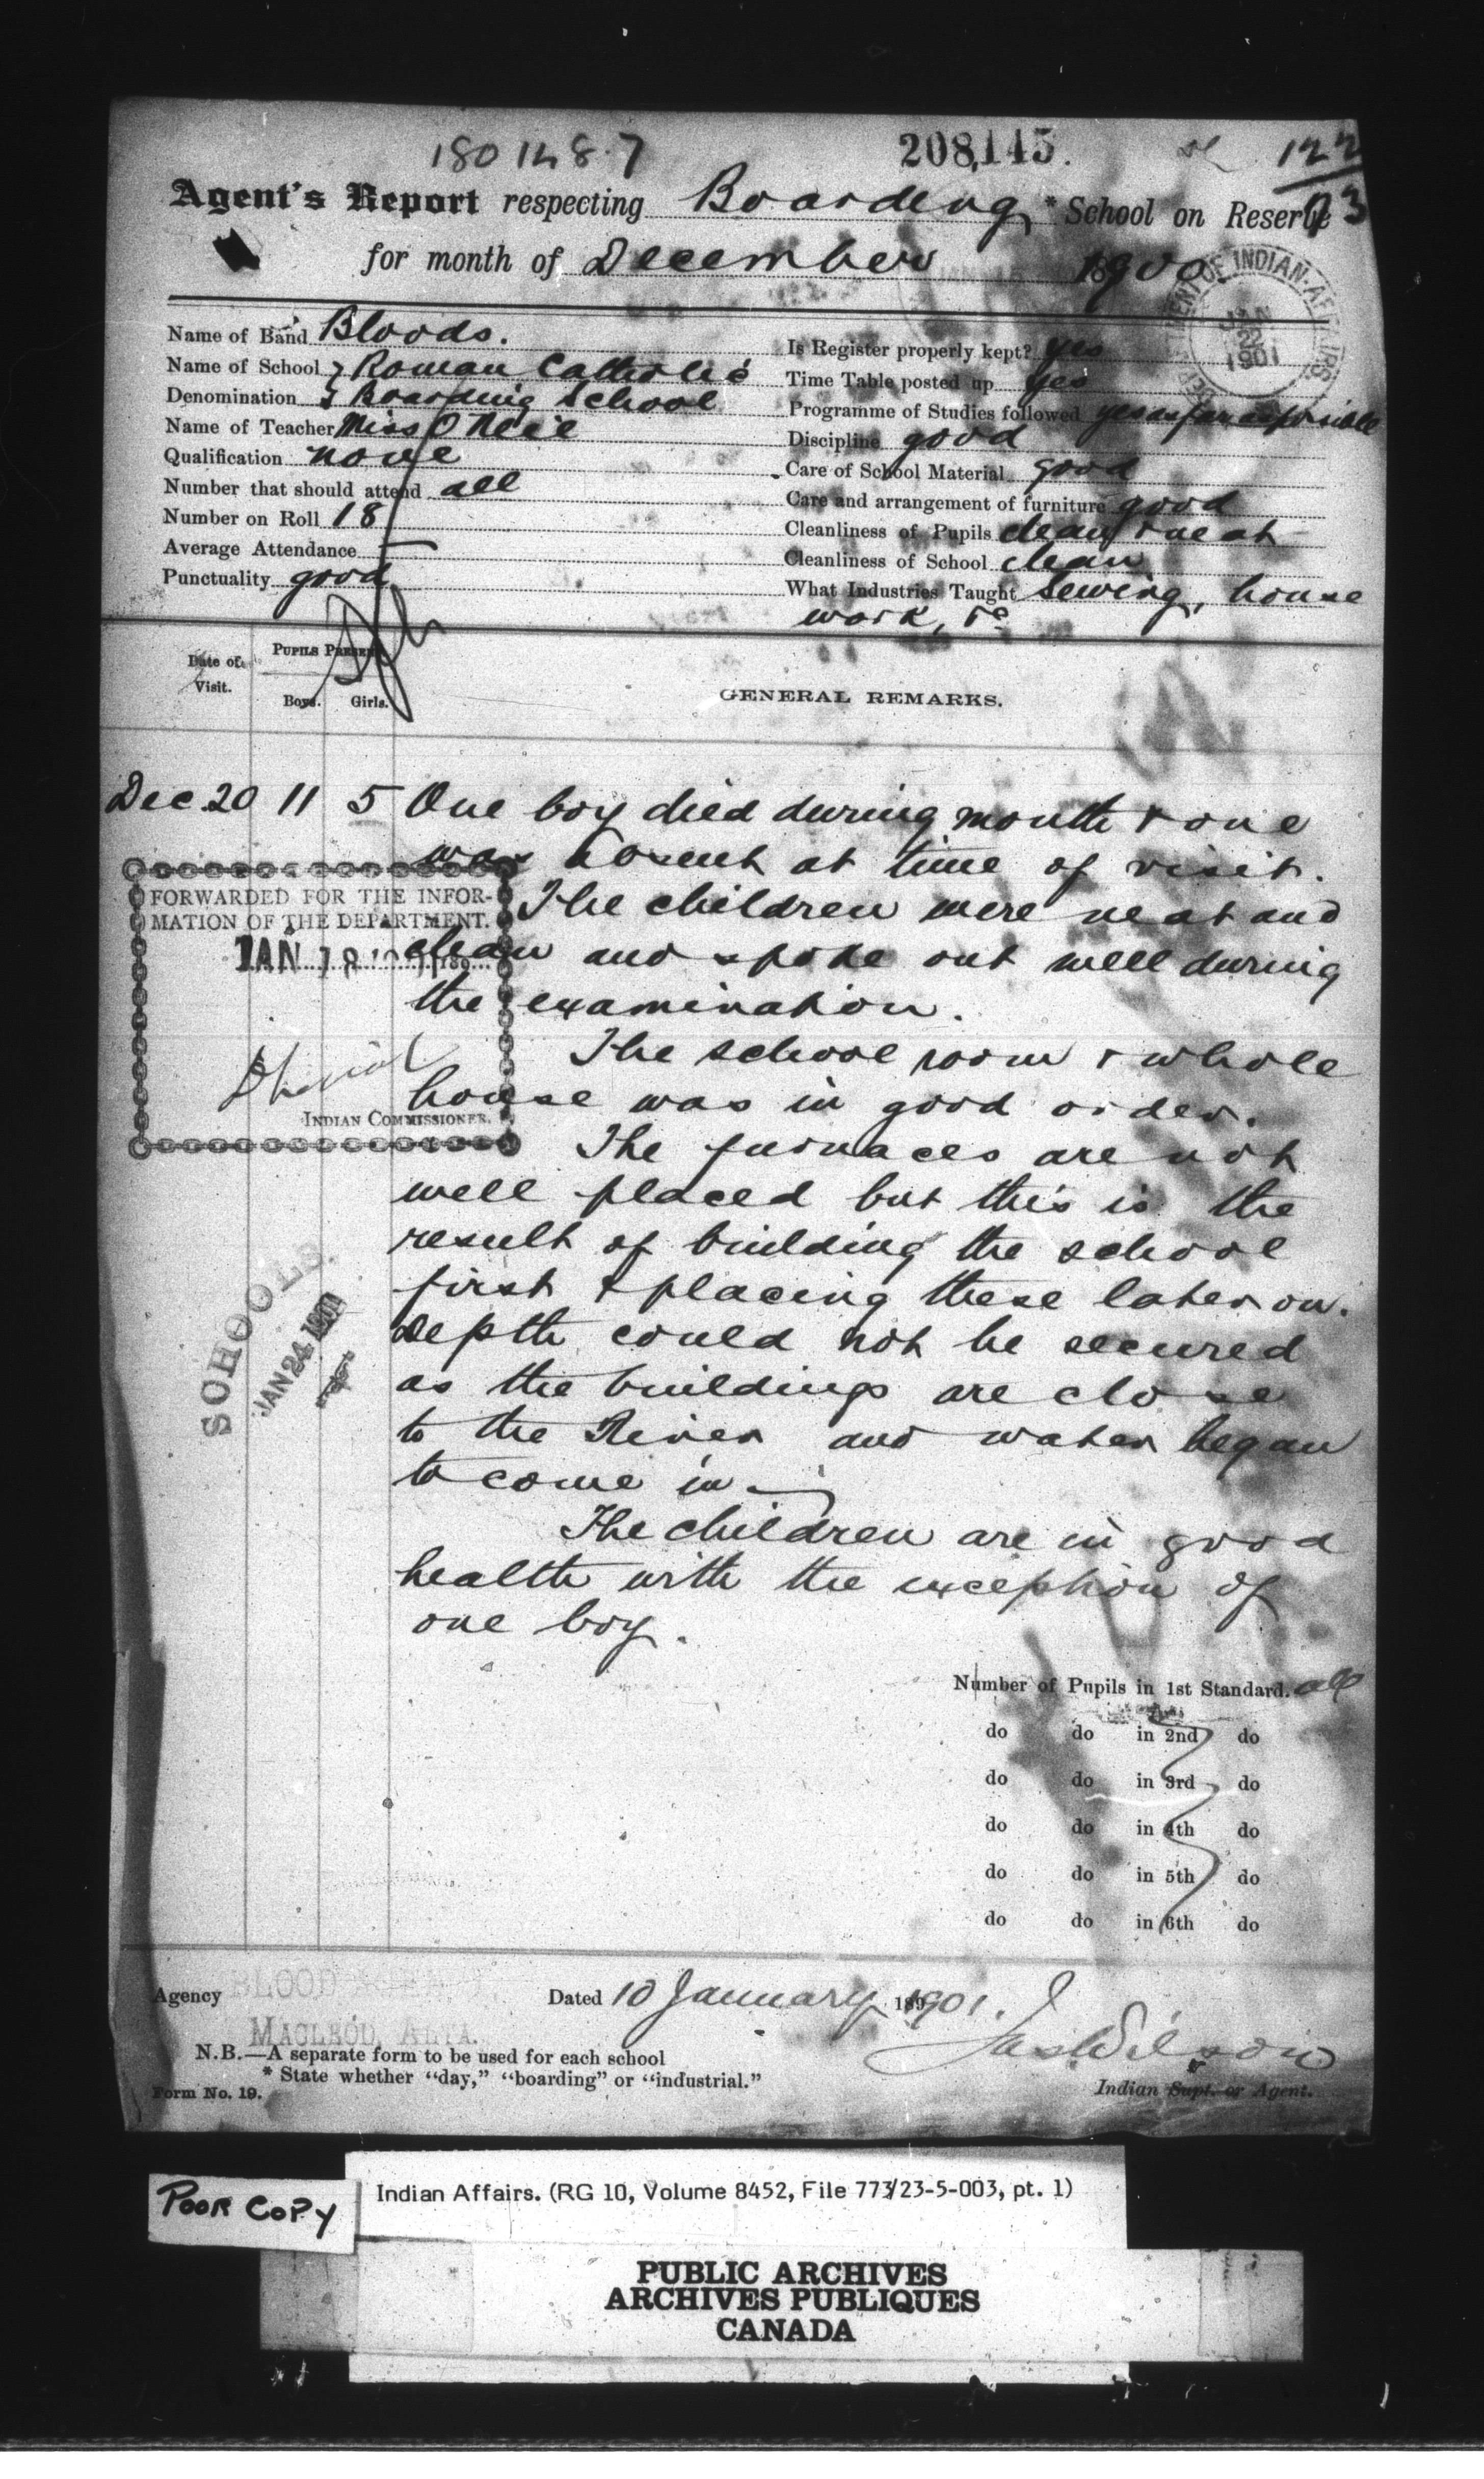 180148.7
208,145.
122
Agent's Report respecting Boarding * School on Reserve
for month of December 1900
DEPARTMENT OF INDIAN AFFAIRS
JAN 22 1901
Name of Band Bloods.
Name of School } Roman Catholic
Denomination } Boarding School
Name of Teacher Miss O'Neil
Qualification none
Number that should attend all
Number on Roll 18
Average Attendance —
Punctuality good
Is Register properly kept? yes
Time Table posted up yes
Programme of Studies followed yes as far as possible
Discipline good
Care of School Material good
Care and arrangement of furniture good
Cleanliness of Pupils clean & neat
Cleanliness of School clean
What Industries Taught Sewing, house
work, &c
Date of Visit.
PUPILS PRESENT
Boys. Girls.
GENERAL REMARKS.
Dec 20 11 5 One boy died during month & one
was absent at time of visit.
The children were neat and
clean and spoke out well during
the examination.
The school room & whole
house was in good order.
The furnaces are not
well placed but this is the
result of building the school
first & placing these later on.
Depth could not be secured
as the buildings are close
to the River and water began
to come in —
The children are in good
health with the exception of
one boy.
FORWARDED FOR THE INFOR-
MATION OF THE DEPARTMENT.
JAN 18 189
INDIAN COMMISSIONER.
SCHOOLS.
JAN 24 1901
Number of Pupils in 1st Standard. all
do do in 2nd do
do do in 3rd do
do do in 4th do
do do in 5th do
do do in 6th do
Agency BLOOD AGENCY
MACLEOD, ALTA.
Dated 10 January 1901.
Jas Wilson
Indian Supt. or Agent.
N.B.—A separate form to be used for each school
* State whether "day," "boarding" or "industrial."
Form No. 19.
POOR COPY
Indian Affairs. (RG 10, Volume 8452, File 773/23-5-003, pt. 1)
PUBLIC ARCHIVES
ARCHIVES PUBLIQUES
CANADA